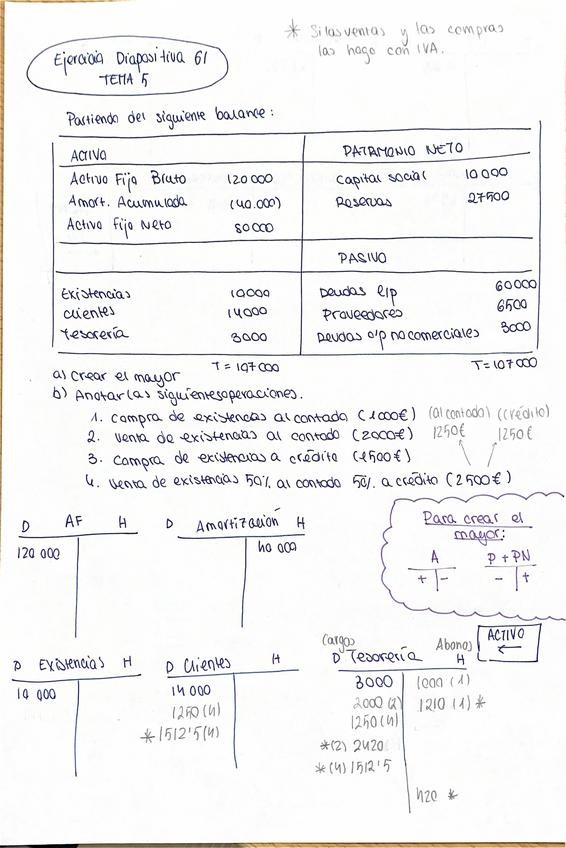 * Si las ventas y las compras
las hago con IVA.
Ejercicio Diapositiva 61
TEMA 5
Partiendo del siguiente balance:
ACTIVO
Activo Fijo Bruto 120 000
Amort. Acumulada (40.000)
Activo Fijo Neto 80 000
PATRIMONIO NETO
Capital social 10 000
Reservas 27500
Existencias 10000
Clientes 14000
Tesorería 3000
PASIVO
Deudas l/p 60000
Proveedores 6500
Deudas c/p no comerciales 3000
T = 107 000
T = 107 000
a) Crear el mayor
b) Anotar las siguientes operaciones.
1. Compra de existencias al contado (1000€)
2. Venta de existencias al contado (2000€)
3. Compra de existencias a crédito (1500€)
4. Venta de existencias 50% al contado 50% a crédito (2500€)
(al contado) (crédito)
1250€ 1250€
Para crear el
mayor:
A
+ -
P + PN
- +
D AF H
120 000
D Amortización H
40 000
D Existencias H
10 000
D Clientes H
14 000
1250 (4)
* 1512'5 (4)
(Cargos) Abonos
D Tesorería H
3000 1000 (1)
2000 (2) 1210 (1) *
1250 (4)
* (2) 2420
* (4) 1512'5
420 *
ACTIVO
←